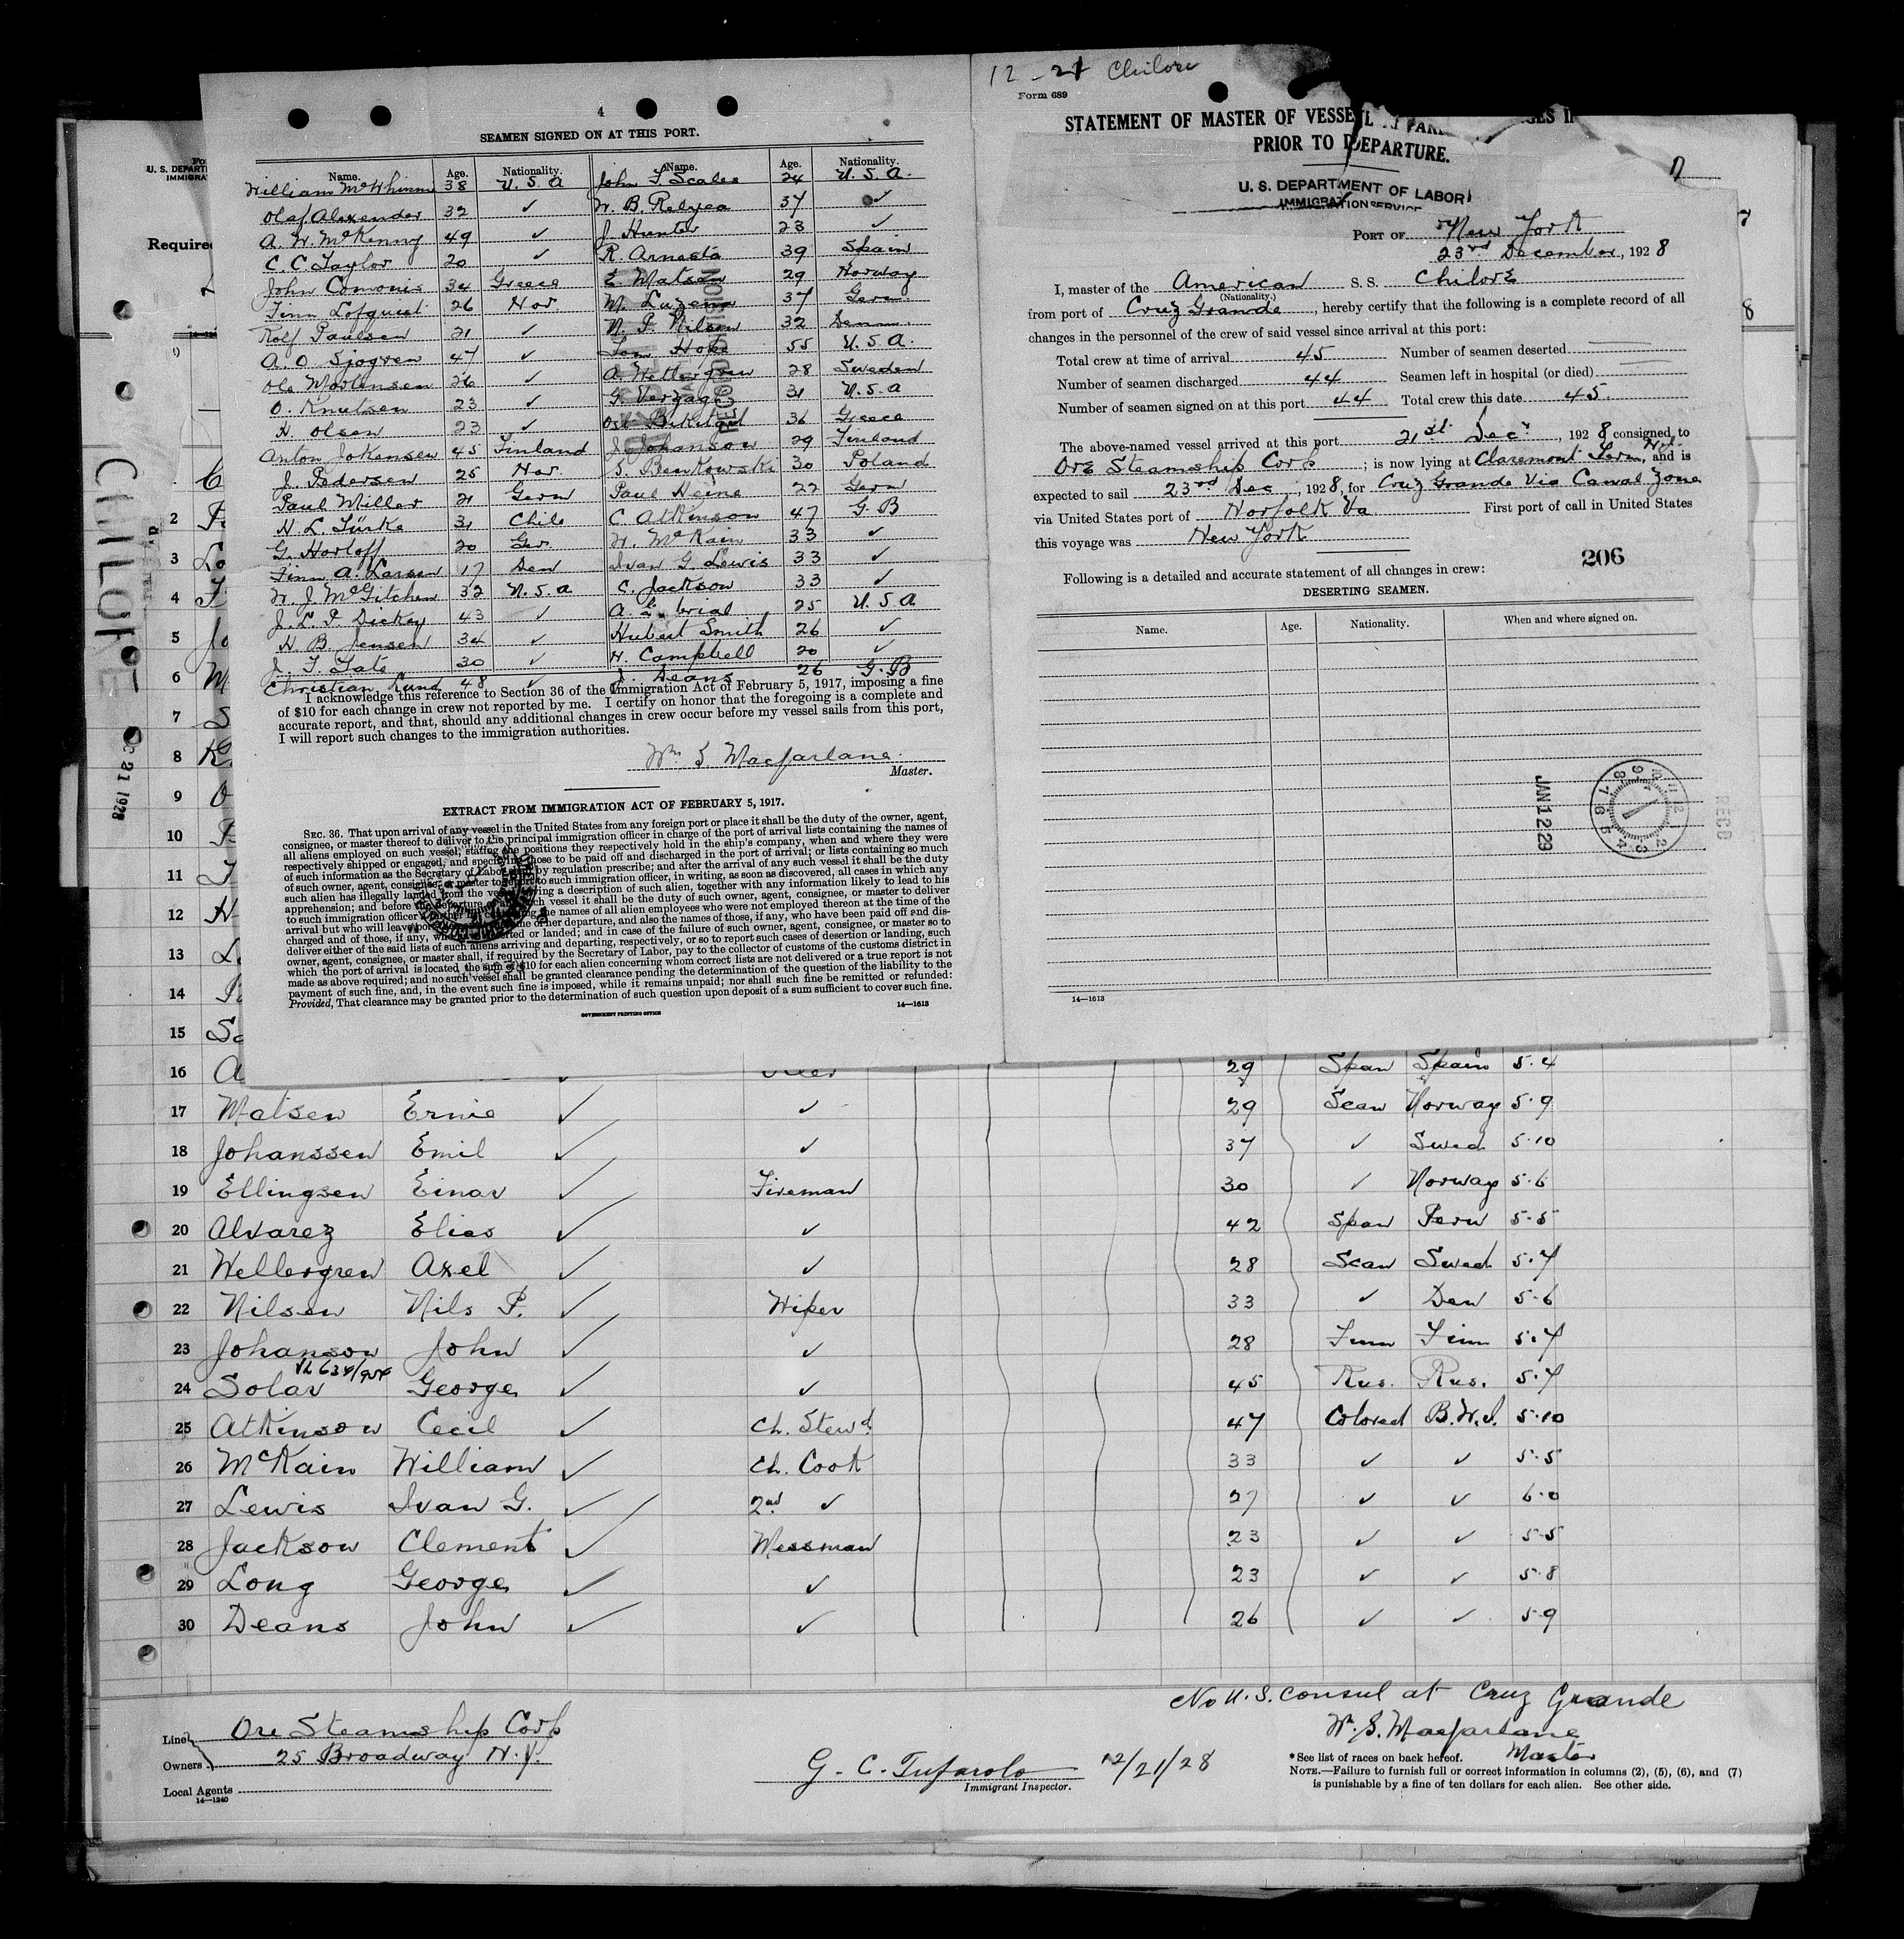 12-21 Chilore
4
SEAMEN SIGNED ON AT THIS PORT.
Name. Age. Nationality. Name. Age. Nationality.
William McWhinn 38 U.S.A John F. Scales 24 U.S.A.
Olaf Alexander 32 ✓ W. B. Relyea 37 ✓
A. W. McKenny 49 ✓ J. Hunter 23 ✓
C. C Taylor 20 ✓ R. Arnesto 39 Spain
John Comonis 34 Greece E Matsen 29 Norway
Finn Lofquist 26 Nor M. Luzena 37 Germ
Rolf Paulsen 21 ✓ N. P. Nilson 32 Denm
A. O Sjogren 47 ✓ Tom Hope 55 U.S.A.
Ole Mortensen 26 ✓ A Wettergren 28 Sweden
O. Knutsen 23 ✓ 31 U.S.A
H. Olsen 23 ✓ 36 Greece
Anton Johansen 45 Finland J Johanson 29 Finland
J. Pedersen 25 Nor. S. Benkowski 30 Poland
Paul Miller 21 Germ Paul Heine 22 Germ
H. L. Türke 31 Chile C Atkinson 47 G.B
G. Horloff 20 Ger. W. McKain 33 ✓
Finn A. Larsen 17 Den Ivan G. Lewis 33 ✓
W. J. McGitchen 32 U.S.a C. Jackson 33 ✓
J. L. P. Dickey 43 ✓ A. 25 U.S.A
H. B. Jensen 34 ✓ Hubert Smith 26 ✓
J. F. Tate 30 ✓ H. Campbell 20 ✓
Christian Lund 48 ✓ J. Deans 26 G.B
I acknowledge this reference to Section 36 of the Immigration Act of February 5, 1917, imposing a fine
of $10 for each change in crew not reported by me. I certify on honor that the foregoing is a complete and
accurate report, and that, should any additional changes in crew occur before my vessel sails from this port,
I will report such changes to the immigration authorities.
Wm S. Macfarlane.
Master.
EXTRACT FROM IMMIGRATION ACT OF FEBRUARY 5, 1917.
SEC. 36. That upon arrival of any vessel in the United States from any foreign port or place it shall be the duty of the owner, agent,
consignee, or master thereof to deliver to the principal immigration officer in charge of the port of arrival lists containing the names of
all aliens employed on such vessel, stating the positions they respectively hold in the ship's company, when and where they were
respectively shipped or engaged, and specifying those to be paid off and discharged in the port of arrival; or lists containing so much
of such information as the Secretary of Labor shall by regulation prescribe; and after the arrival of any such vessel it shall be the duty
of such owner, agent, consignee, or master to report to such immigration officer, in writing, as soon as discovered, all cases in which any
such alien has illegally landed from the vessel, giving a description of such alien, together with any information likely to lead to his
apprehension; and before the departure of any such vessel it shall be the duty of such owner, agent, consignee, or master to deliver
to such immigration officer a further list containing the names of all alien employees who were not employed thereon at the time of the
arrival but who will leave port thereon at the time of her departure, and also the names of those, if any, who have been paid off and dis-
charged and of those, if any, who have deserted or landed; and in case of the failure of such owner, agent, consignee, or master so to
deliver either of the said lists of such aliens arriving and departing, respectively, or so to report such cases of desertion or landing, such
owner, agent, consignee, or master shall, if required by the Secretary of Labor, pay to the collector of customs of the customs district in
which the port of arrival is located the sum of $10 for each alien concerning whom correct lists are not delivered or a true report is not
made as above required; and no such vessel shall be granted clearance pending the determination of the question of the liability to the
payment of such fine, and, in the event such fine is imposed, while it remains unpaid; nor shall such fine be remitted or refunded:
Provided, That clearance may be granted prior to the determination of such question upon deposit of a sum sufficient to cover such fine.
14—1613
GOVERNMENT PRINTING OFFICE
Form 689
STATEMENT OF MASTER OF VESSEL
PRIOR TO DEPARTURE.
U. S. DEPARTMENT OF LABOR
IMMIGRATION SERVICE
PORT OF New York
23rd December, 1928
I, master of the American S. S. Chilore
(Nationality.)
from port of Cruz Grande, hereby certify that the following is a complete record of all
changes in the personnel of the crew of said vessel since arrival at this port:
Total crew at time of arrival 45 Number of seamen deserted
Number of seamen discharged 44 Seamen left in hospital (or died)
Number of seamen signed on at this port 44 Total crew this date 45
The above-named vessel arrived at this port 21st Dec, 1928 consigned to
Ore Steamship Corp; is now lying at Claremont Term, and is
expected to sail 23rd Dec, 1928, for Cruz Grande Via Canal Zone
via United States port of Norfolk Va. First port of call in United States
this voyage was New York
206
Following is a detailed and accurate statement of all changes in crew:
DESERTING SEAMEN.
Name. Age. Nationality. When and where signed on.
JAN 12 29
RECD
14—1613
U. S. DEPARTM
IMMIGRA
Require
CHILORE
21 1928
2
3 Lo
4
5 Jo
6 M
7 S
8 K
9 O
10
11
12 H
13
14
15 Sa
16 A Oiler 29 Span Spain 5.4
17 Matsen Ernie ✓ ✓ 29 Scan Norway 5.9
18 Johanssen Emil ✓ ✓ 37 ✓ Swed 5.10
19 Ellingsen Einar ✓ Fireman 30 ✓ Norway 5.6
20 Alvarez Elias ✓ ✓ 42 Span Peru 5.5
21 Wellergren Axel ✓ ✓ 28 Scan Swed 5.7
22 Nilsen Nils P. ✓ Wiper 33 ✓ Den 5.6
23 Johanson John ✓ ✓ 28 Finn Finn 5.7
24 Solar George ✓ ✓ 45 Rus. Rus. 5.7
25 Atkinson Cecil ✓ Ch. Stewd 47 Colored B.W.I. 5.10
26 McKain William ✓ Ch. Cook 33 ✓ ✓ 5.5
27 Lewis Ivan G. ✓ 2nd ✓ 27 ✓ ✓ 6.0
28 Jackson Clement ✓ Messman 23 ✓ ✓ 5.5
29 Long George ✓ ✓ 23 ✓ ✓ 5.8
30 Deans John ✓ ✓ 26 ✓ ✓ 5.9
No U.S. Consul at Cruz Grande
Wm. S. Macfarlane
Master
Line Ore Steamship Corp
Owners 25 Broadway N.Y.
Local Agents
14—1240
G. C. Tufarolo 12/21/28
Immigrant Inspector.
*See list of races on back hereof.
NOTE.—Failure to furnish full or correct information in columns (2), (5), (6), and (7)
is punishable by a fine of ten dollars for each alien. See other side.